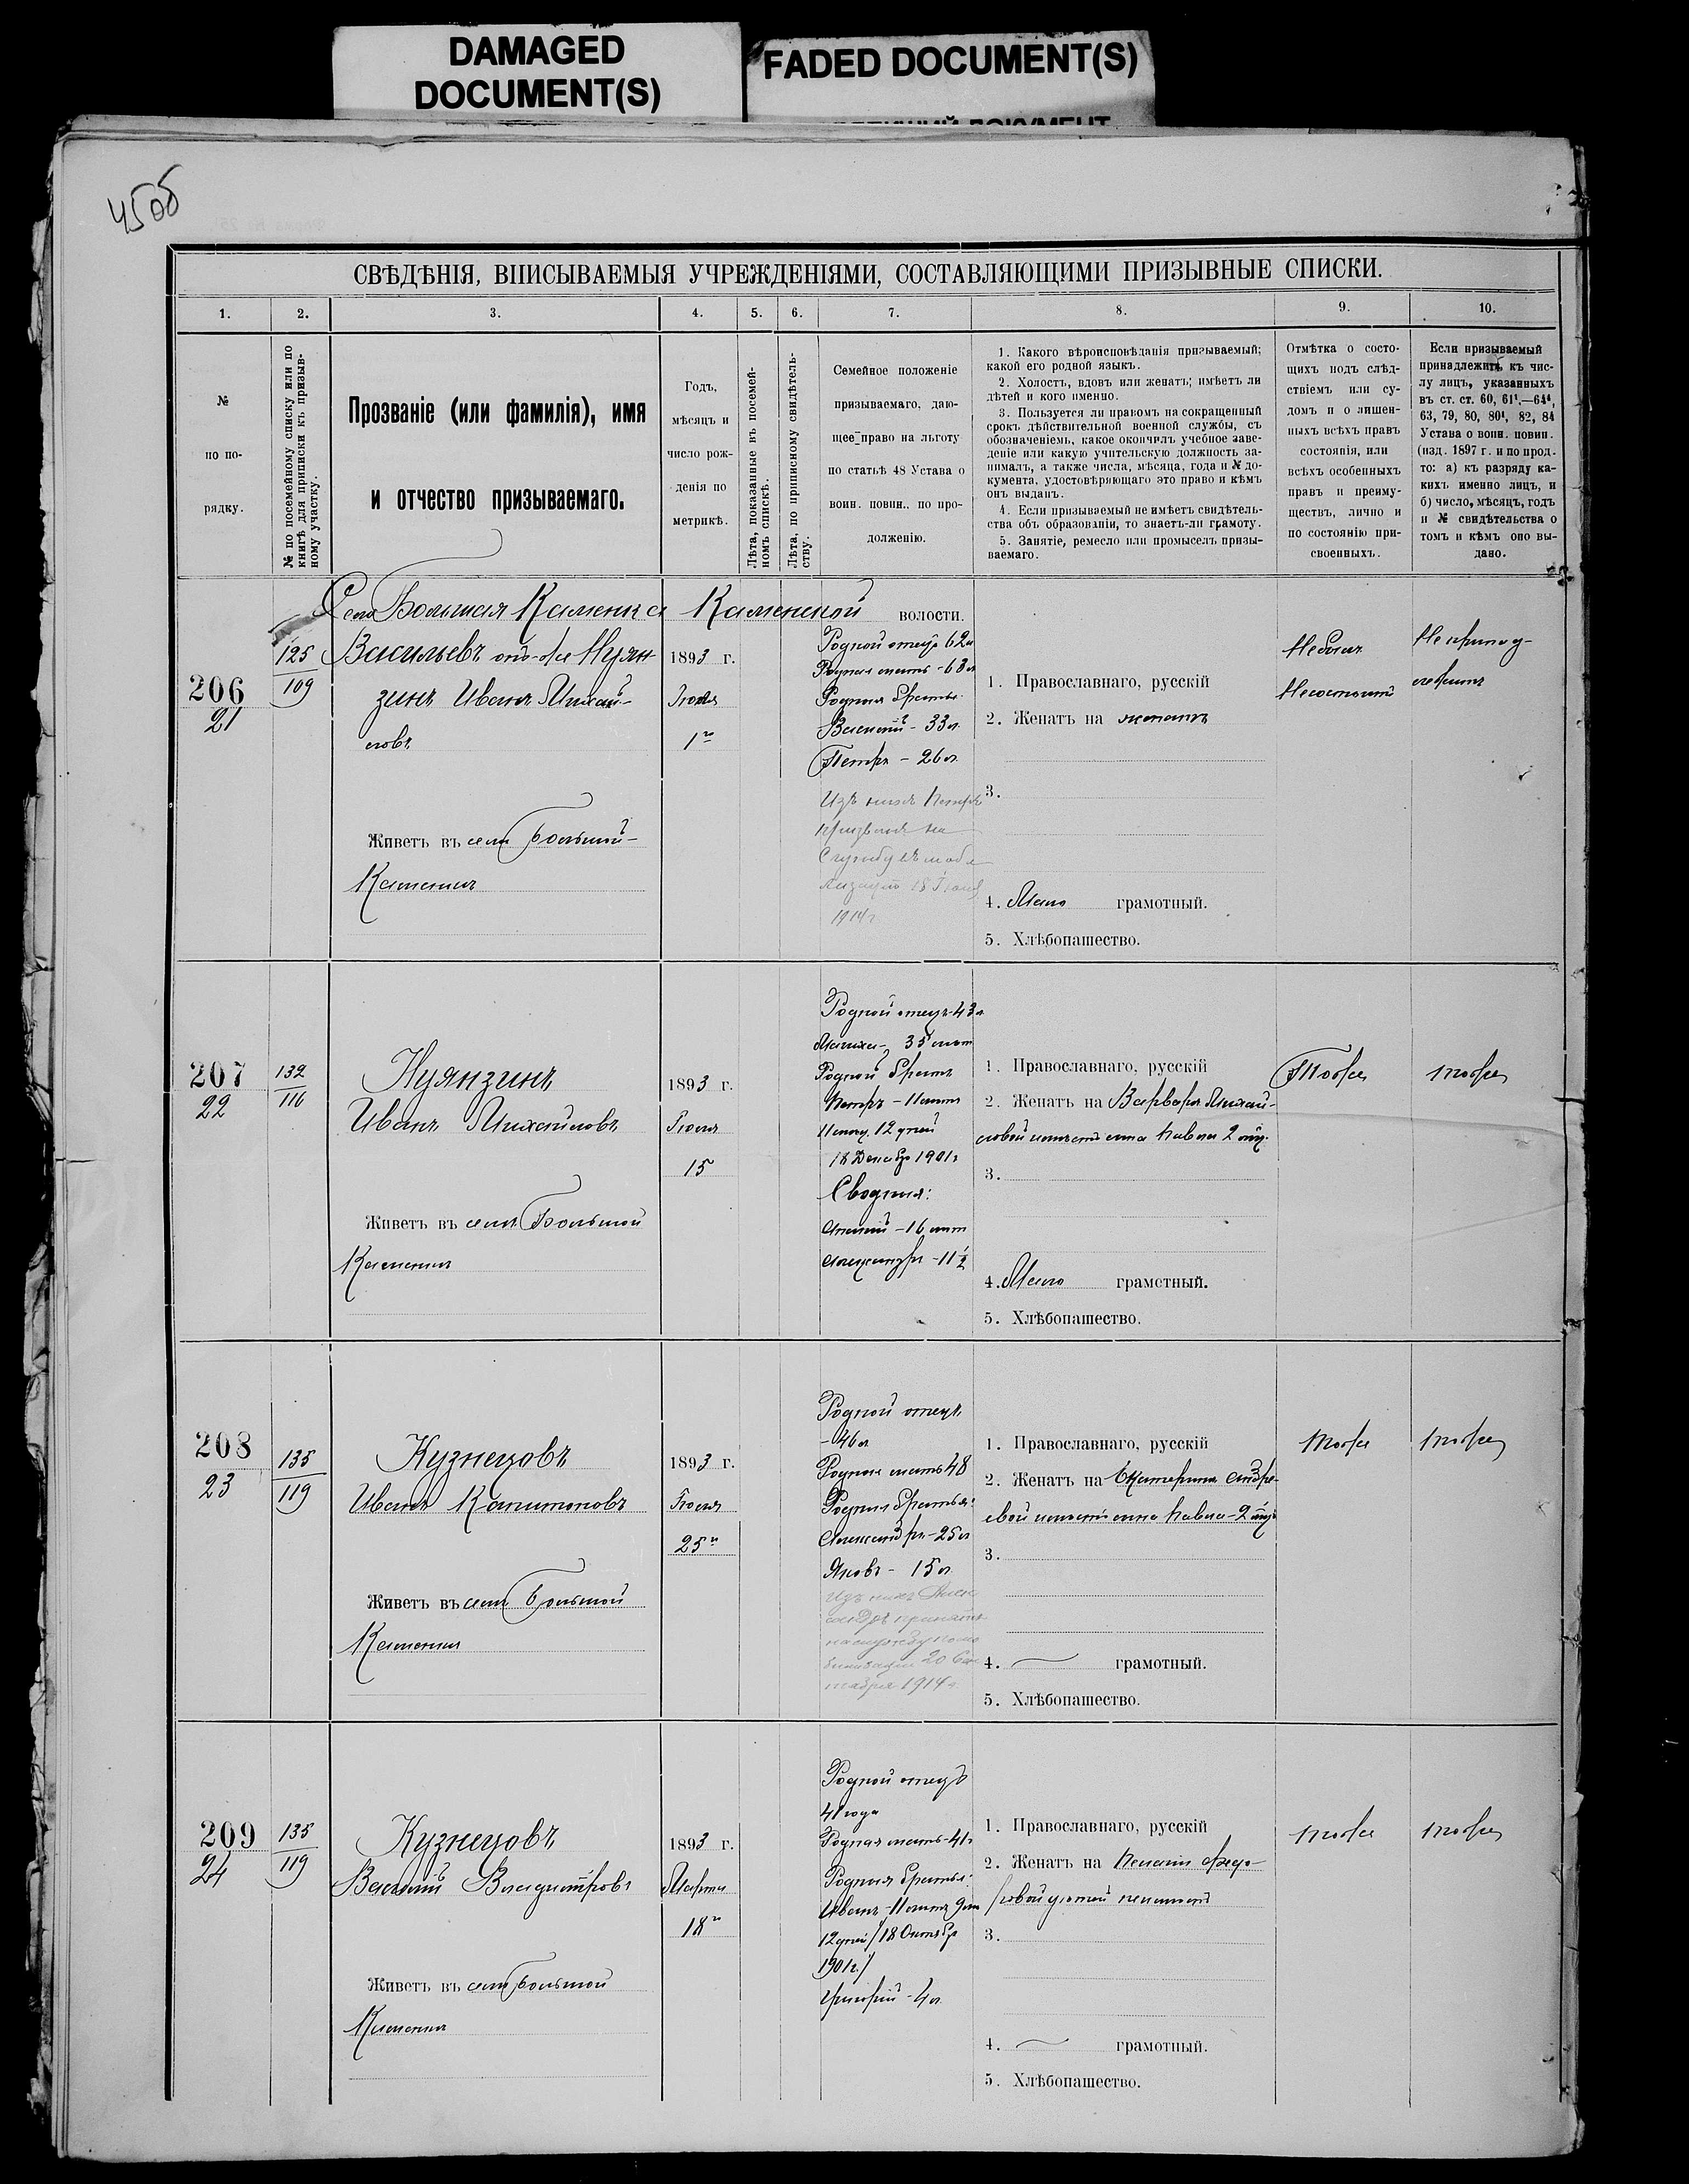 DAMAGED
DOCUMENT(S)
FADED DOCUMENT(S)
45об
СВѢДѢНІЯ, ВПИСЫВАЕМЫЯ УЧРЕЖДЕНІЯМИ, СОСТАВЛЯЮЩИМИ ПРИЗЫВНЫЕ СПИСКИ.
1. 2. 3. 4. 5. 6. 7. 8. 9. 10.
№
по по-
рядку.
№ по посемейному списку или по
книгѣ для приписки къ призыв-
ному участку.
Прозваніе (или фамилія), имя
и отчество призываемаго.
Годъ,
мѣсяцъ и
число рож-
денія по
метрикѣ.
Лѣта, показанные въ посемей-
номъ спискѣ.
Лѣта, по приписному свидѣтель-
ству.
Семейное положеніе
призываемаго, даю-
щее право на льготу
по статьѣ 48 Устава о
воин. повин.. по про-
долженію.
1. Какого вѣроисповѣданія призываемый;
какой его родной языкъ.
2. Холостъ, вдовъ или женатъ; имѣетъ ли
дѣтей и кого именно.
3. Пользуется ли правомъ на сокращенный
срокъ дѣйствительной военной службы, съ
обозначеніемъ, какое окончилъ учебное заве-
деніе или какую учительскую должность за-
нималъ, а также числа, мѣсяца, года и № до-
кумента, удостовѣряющаго это право и кѣмъ
онъ выданъ.
4. Если призываемый не имѣетъ свидѣтель-
ства объ образованіи, то знаетъ-ли грамоту.
5. Занятіе, ремесло или промыселъ призы-
ваемаго.
Отмѣтка о состо-
щихъ подъ слѣд-
ствіемъ или су-
домъ и о лишен-
ныхъ всѣхъ правъ
состоянія, или
всѣхъ особенныхъ
правъ и преиму-
ществъ, лично и
по состоянію при-
своенныхъ.
Если призываемый
принадлежитъ къ чис-
лу лицъ, указанныхъ
въ ст. ст. 60, 61¹.—64⁴,
63, 79, 80, 80¹, 82, 84
Устава о воин. повин.
(изд. 1897 г. и по прод.
то: а) къ разряду ка-
кихъ именно лицъ, и
б) число, мѣсяцъ, годъ
и № свидѣтельства о
томъ и кѣмъ оно вы-
дано.
Село Большая Каменка Каменской волости.
206
21
125
109
Васильевъ онъ-же Нуян-
зинъ Иванъ Михай-
ловъ
Живетъ въ селѣ Большой-
Каменкѣ
1893 г.
Іюля
1го
Родной отецъ 62л
Родная мать - 63л
Родныя братья:
Василій - 33л.
Петръ - 26л.
Изъ нихъ Петръ
призванъ на
службу
18
1914г.
1. Православнаго, русскій
2. Женатъ на женатъ
3.
4. Мало грамотный.
5. Хлѣбопашество.
Не былъ
Не состоитъ
Не принад-
лежитъ
207
22
132
116
Нуянзинъ
Иванъ Михайловъ
Живетъ въ селѣ Большой
Каменкѣ
1893 г.
Іюля
15
Родной отецъ-43л
Мачиха - 35 лѣт
Родной братъ
Петръ - 11 лѣтъ
11 мѣсяц. 12 дней
18 Декабр 1901г
Сводныя:
16 лѣт
Александръ - 11½
1. Православнаго, русскій
2. Женатъ на Варваръ Михай-
ловой имѣетъ сына Павла 2
3.
4. Мало грамотный.
5. Хлѣбопашество.
Тоже
тоже
208
23
135
119
Кузнецовъ
Иванъ Капитоновъ
Живетъ въ селѣ Большой
Каменкѣ
1893 г.
Іюля
25го
Родной отецъ
- 46л
Родная мать 48
Родныя братья:
Александръ - 25л
Яковъ - 15л.
Изъ нихъ Алек
сандръ принятъ
на службу по мо
билизаціи 20 Сен
тября 1914г.
1. Православнаго, русскій
2. Женатъ на Екатерина Андре-
евой имѣетъ сына Павла - 2
3.
4. грамотный.
5. Хлѣбопашество.
тоже
тоже
209
24
135
119
Кузнецовъ
Василій Владиміровъ
Живетъ въ селѣ Большой
Каменкѣ
1893 г.
Марта
18го
Родной отецъ
41 года
Родная мать - 41г
Родныя братья:
Иванъ - 11 лѣтъ 9м
12 дней /18 Октябр
1901г./
Григорій - 4л.
1. Православнаго, русскій
2. Женатъ на Пелагіи Федо-
ровой дѣтей неимѣетъ
3.
4. грамотный.
5. Хлѣбопашество.
тоже
тоже